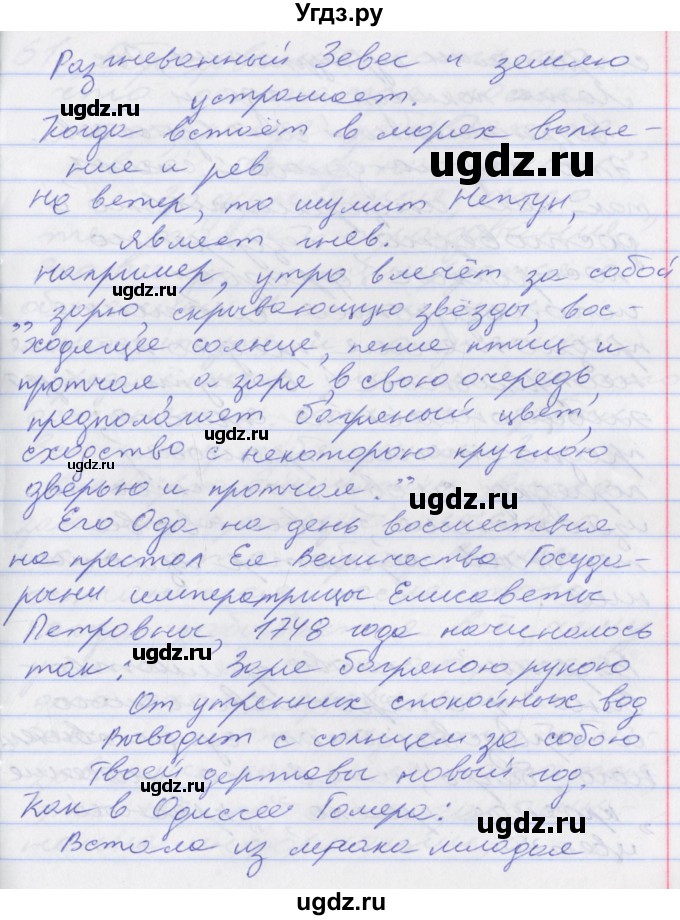 Угдз.ру
Разгневанный Зевес и землю
устрашает.
Когда встаёт в морях волне-
ние и рев
Не ветер, то шумит Нептун,
являет гнев.
Например, утро влечёт за собой
„зарю, скрывающую звёзды, вос-
ходящее солнце, пение птиц и
протчая, а заря, в свою очередь,
предполагает багряный цвет,
сходство с некоторою круглою
дверью и протчая."
Его Ода на день восшествия
на престол Ея Величества Госуда-
рыни императрицы Елисаветы
Петровны, 1748 года начиналось
так: Заря багряною рукою
От утренних спокойных вод
Выводит с солнцем за собою
Твоей державы новый год.
Как в Одиссее Гомера:
Встала из мрака младая
ugdz.ru
ugdz.ru
ugdz.ru
ugdz.ru
ugdz.ru
ugdz.ru
ugdz.ru
ugdz.ru
ugdz.ru
ugdz.ru
ugdz.ru
ugdz.ru